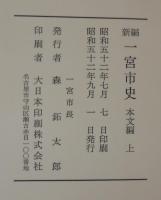 新編 一宮市史 本文編 上
昭和五十二年七月 七日印刷
昭和五十二年九月 一日発行
一宮市長
発行者 森 鉐太郎
印刷者 大日本印刷株式会社
名古屋市守山区瀬古赤目一〇〇番地